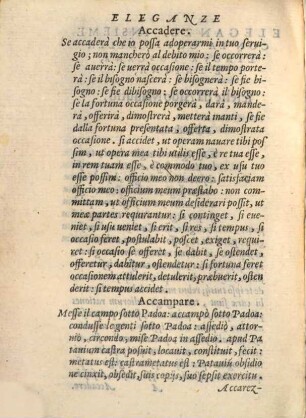 ELEGANZE
Accadere.
Se accaderà che io possa adoperarmi in tuo serui-
gio; non mancherò al debito mio: se occorrerà:
se auerrà: se uerrà occasione: se il tempo porte-
rà: se il bisogno nascerà: se bisognerà: se fie bi-
sogno: se fie dibisogno: se occorrerà il bisogno:
se la fortuna occasione porgerà, darà, mande-
rà, offerirà, dimostrerà, metterà inanti, se fie
dalla fortuna presentata, offerta, dimostrata
occasione, si accidet, ut operam nauare tibi pos
sim, ut opera mea tibi utilis esse, è re tua esse,
in rem tuam esse, è commodo tuo, ex usu tuo
esse possim: officio meo non deero: satisfaciam
officio meo: officium meum præstabo: non com-
mittam, ut officium meum desiderari possit, ut
meæ partes requirantur: si continget, si eue-
niet, si usu ueniet, si erit, si res, si tempus, si
si occasio feret, postulabit, poscet, exiget, requi-
ret: si occasio se offeret, se dabit, se ostendet,
offeretur, dabitur, ostendetur: si fortuna feret
occasionem attulerit, detulerit, præbuerit, osten-
derit: si tempus accidet.
Accampare.
Messe il campo sotto Padoa: accampò sotto Padoa:
condusse le genti sotto Padoa: assediò, attor-
niò, circondò, mise Padoa in assedio, apud Pa-
tauium castra posuit, locauit, constituit, fecit:
metatus est: castrametatus est: Patauiũ obsidio
ne cinxit, obsedit, suis copijs, suo sepsit exercitu.
Accarez-